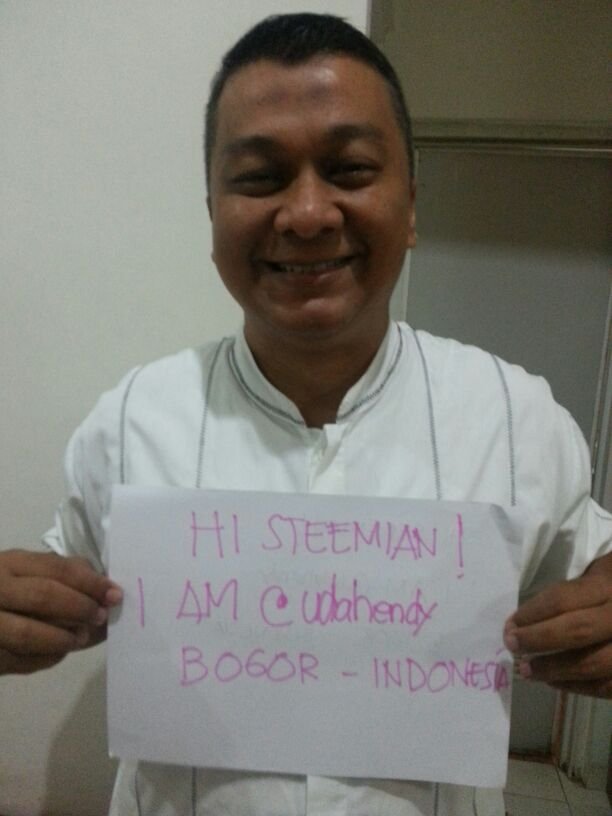 HI STEEMIAN!
I AM @udahendy
BOGOR - INDONESIA